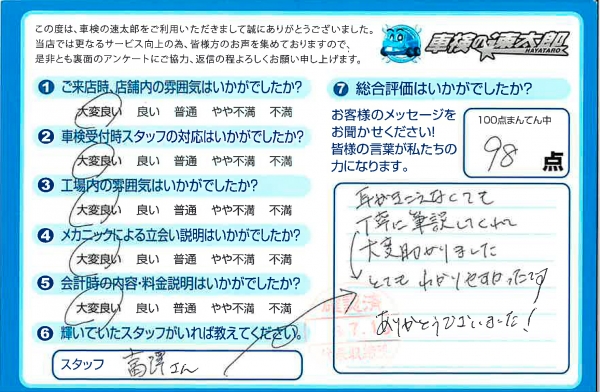 この度は、車検の速太郎をご利用いただきまして誠にありがとうございました。
当店では更なるサービス向上の為、皆様方のお声を集めておりますので、
是非とも裏面のアンケートにご協力、返信の程よろしくお願い申し上げます。
車検の速太郎
HAYATARO
1 ご来店時、店舗内の雰囲気はいかがでしたか?
大変良い 良い 普通 やや不満 不満
2 車検受付時スタッフの対応はいかがでしたか?
大変良い 良い 普通 やや不満 不満
3 工場内の雰囲気はいかがでしたか?
大変良い 良い 普通 やや不満 不満
4 メカニックによる立会い説明はいかがでしたか?
大変良い 良い 普通 やや不満 不満
5 会計時の内容・料金説明はいかがでしたか?
大変良い 良い 普通 やや不満 不満
6 輝いていたスタッフがいれば教えてください。
スタッフ 富澤さん
7 総合評価はいかがでしたか?
お客様のメッセージを
お聞かせください!
皆様の言葉が私たちの
力になります。
100点まんてん中
98 点
耳がきこえなくても
丁寧に筆談してくれて
大変助かりました
とてもわかりやすかったです
ありがとうございました!